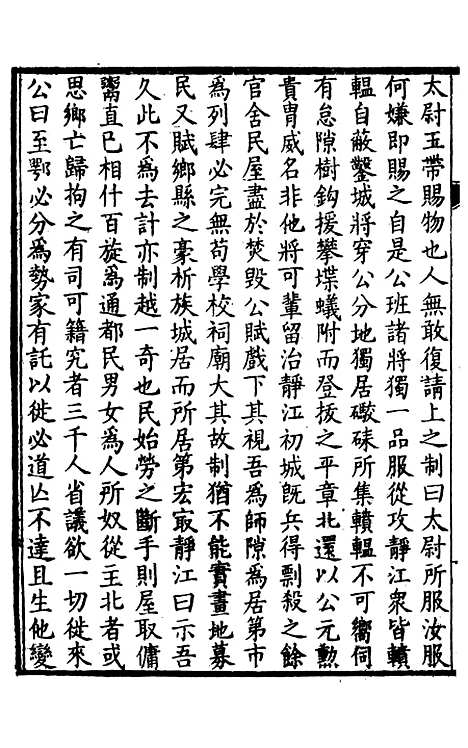 太尉玉帶賜物也人無敢復請上之制曰太尉所服汝服
何嫌即賜之自是公班諸將獨一品服從攻靜江衆皆轒
轀自蔽鑿城將穿公分地獨居礮硃所集轒轀不可嚮伺
有怠隙樹鈎援攀堞蟻附而登拔之平章北還以公元勲
貴胄威名非他將可輩留治靜江初城旣兵得剽殺之餘
官舍民屋盡於焚毀公賦戲下其視吾爲師隙爲居第市
爲列肆必完無苟學校祠廟大其故制猶不能實畫地募
民又賦鄉縣之豪析族城居而所居第宏㝡靜江曰示吾
久此不爲去計亦制越一奇也民始勞之斷手則屋取傭
鬻直已相什百旋爲通都民男女爲人所奴從主北者或
思鄉亡歸拘之有司可籍究者三千人省議欲一切徙來
公曰至鄂必分爲勢家有託以徙必道亾不達且生他變